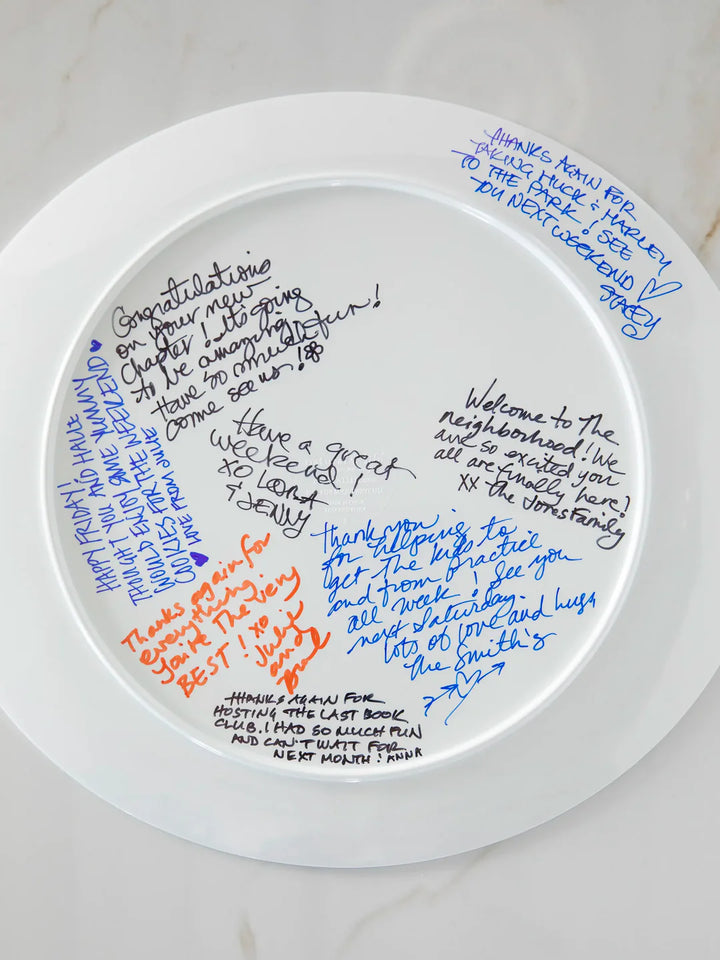 THANKS AGAIN FOR
TAKING HUCK & HARLEY
TO THE PARK! SEE
YOU NEXT WEEKEND
STACEY
Congratulations
on your new
Chapter! It's going
to be amazing!
Have so much fun!
Come see us!
HAPPY FRIDAY!
THOUGHT YOU AND HALLIE
WOULD ENJOY SOME YUMMY
COOKIES FOR THE WEEKEND
LOVE FROM
Have a great
weekend!
XO LORA
& JENNY
Welcome to The
neighborhood! We
are so excited you
all are finally here!
XX The Jones Family
Thank you
for helping to
get the kids to
and from practice
all week! See you
next Saturday.
lots of love and hugs
The Smith's
Thanks again for
everything.
You're The very
BEST! XO
Julie
and
Paul
THANKS AGAIN FOR
HOSTING THE LAST BOOK
CLUB. I HAD SO MUCH FUN
AND CAN'T WAIT FOR
NEXT MONTH! ANNA